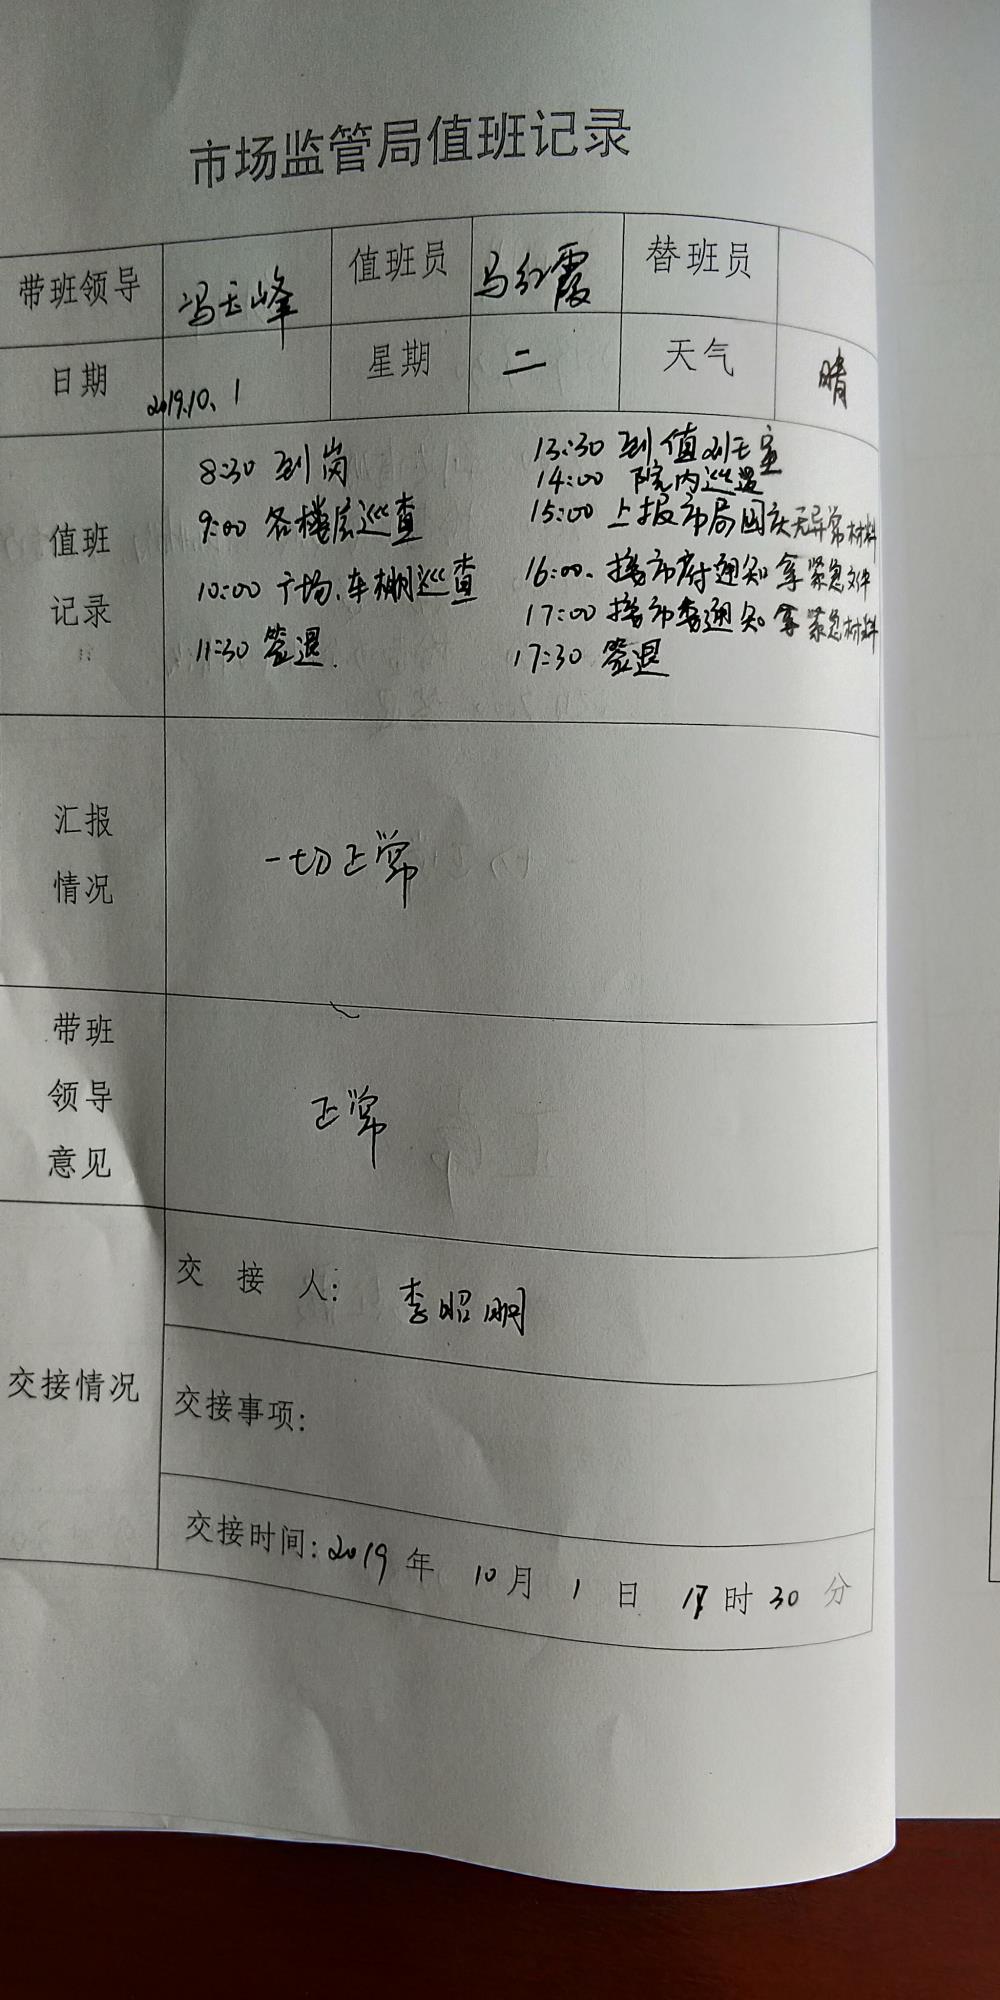 市场监管局值班记录
带班领导 冯玉峰 值班员 马红霞 替班员
日期 2019.10.1 星期 二 天气 晴
值班
记录
8:30 到岗
9:00 各楼层巡查
10:00 广场、车棚巡查
11:30 签退.
13:30 到值班室
14:00 院内巡逻
15:00 上报市局国庆无异常材料
16:00. 接市府通知拿紧急文件
17:00 接市委通知拿紧急材料
17:30 签退
汇报
情况
一切正常
带班
领导
意见
正常
交接情况
交接人: 李昭明
交接事项:
交接时间: 2019 年 10 月 1 日 17 时 30 分